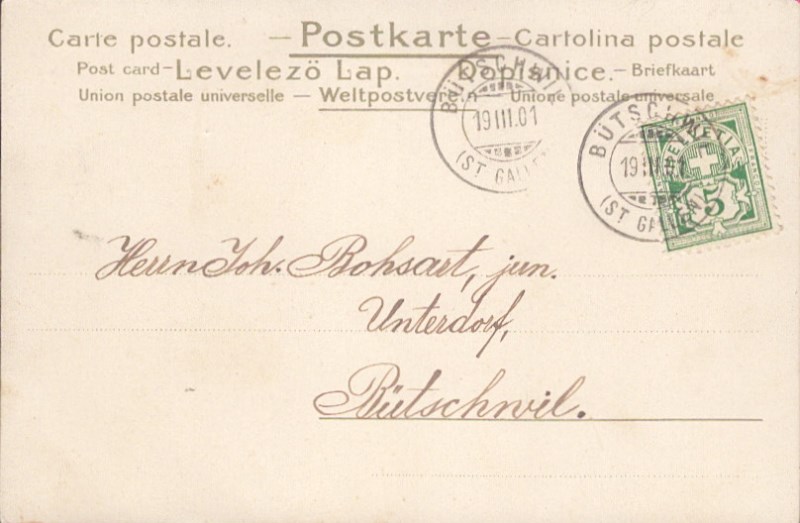 Carte postale. — Postkarte — Cartolina postale
Post card - Levelező Lap. Dopisnice. - Briefkaart
Union postale universelle — Weltpostverein — Unione postale universale
BÜTSCHWIL
19 III.01
(ST GALLEN)
BÜTSCHWIL
19 III.01
(ST GALLEN)
HELVETIA
5
Herrn Joh. Bohsart, jun.
Unterdorf,
Bütschwil.